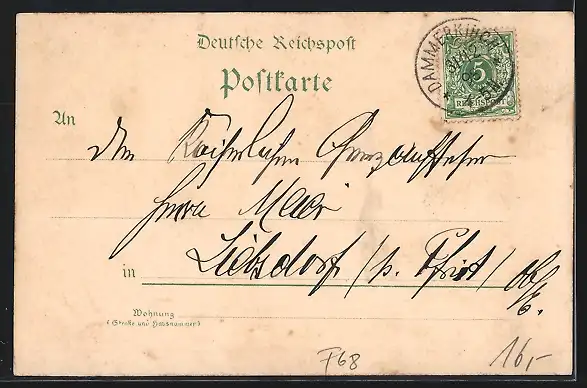 Deutsche Reichspost
Postkarte
DAMMERKIRCH
5
REICHSPOST
An
den Kaiserlichen Grenzaufseher
Herrn Meier
in Liebsdorf / b. Pfirt / Ob/E.
Wohnung
(Straße und Hausnummer)
F68
16,-